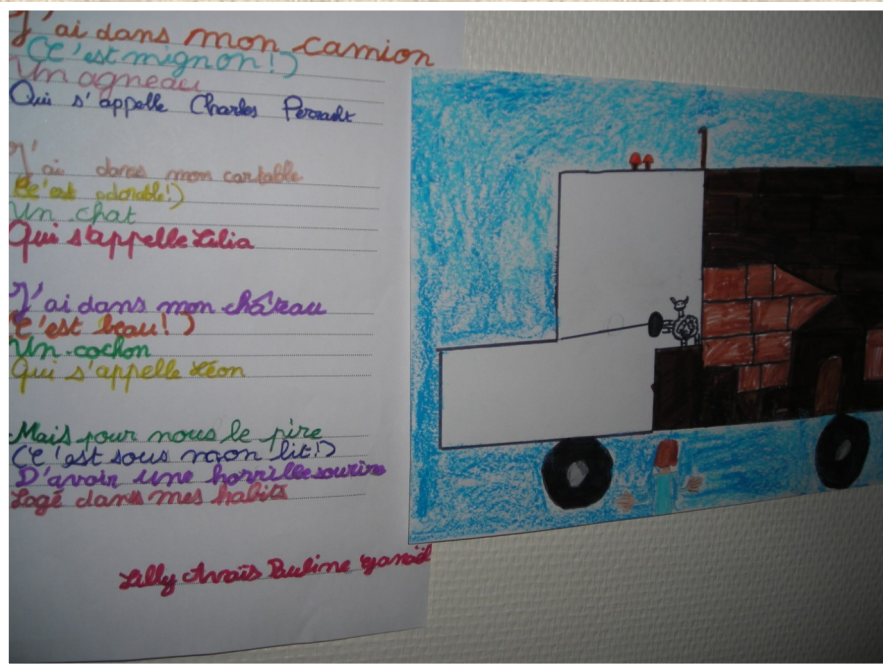 J'ai dans mon camion
(C'est mignon!)
Un agneau
Qui s'appelle Charles Perrault
J'ai dans mon cartable
(C'est adorable!)
Un chat
Qui s'appelle Lilia
J'ai dans mon château
(C'est beau!)
Un cochon
Qui s'appelle Léon
Mais pour nous le pire
(C'est sous mon lit!)
D'avoir une horrible souris
Logé dans mes habits
Lilly Anaïs Pauline